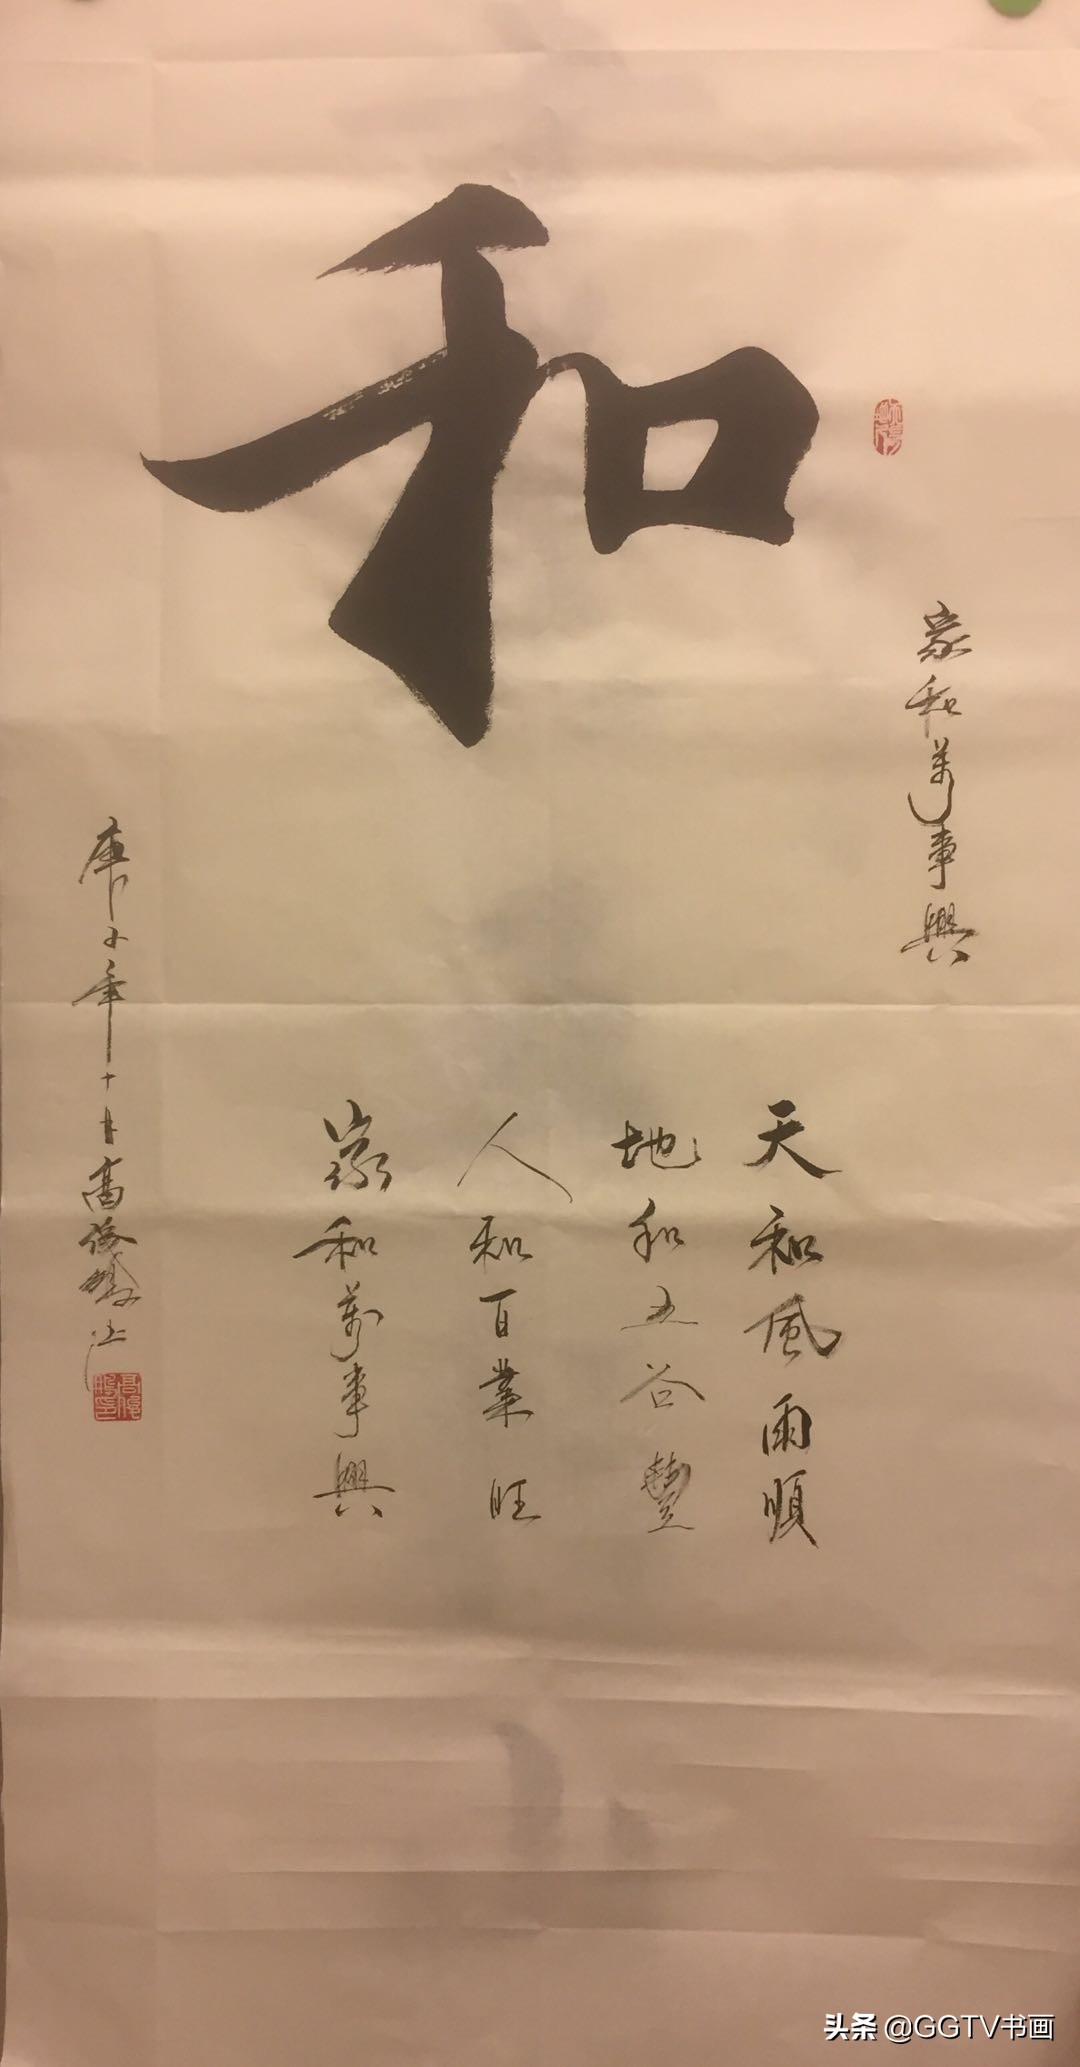 和
家和萬事興
天和風雨順
地和五谷豐
人和百業旺
家和萬事興
庚子年十月高俊
头条 @GGTV书画